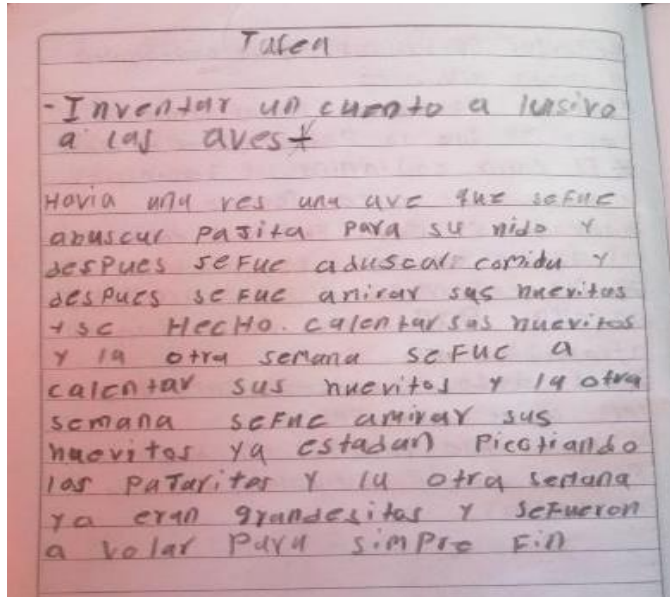 Tarea
- Inventar un cuento a lusivo
a las aves
Havia una ves una ave que sefue
abuscar pajita para su nido y
despues sefue aduscar comida y
despues se fue amirar sus huevitos
y se Hecho. calentar sus huevitos
y la otra semana sefue a
calentar sus huevitos y la otra
semana sefue amirar sus
huevitos ya estadan picotiando
los pajaritos y la otra semana
ya eran grandesitos y sefueron
a volar para simpre Fin